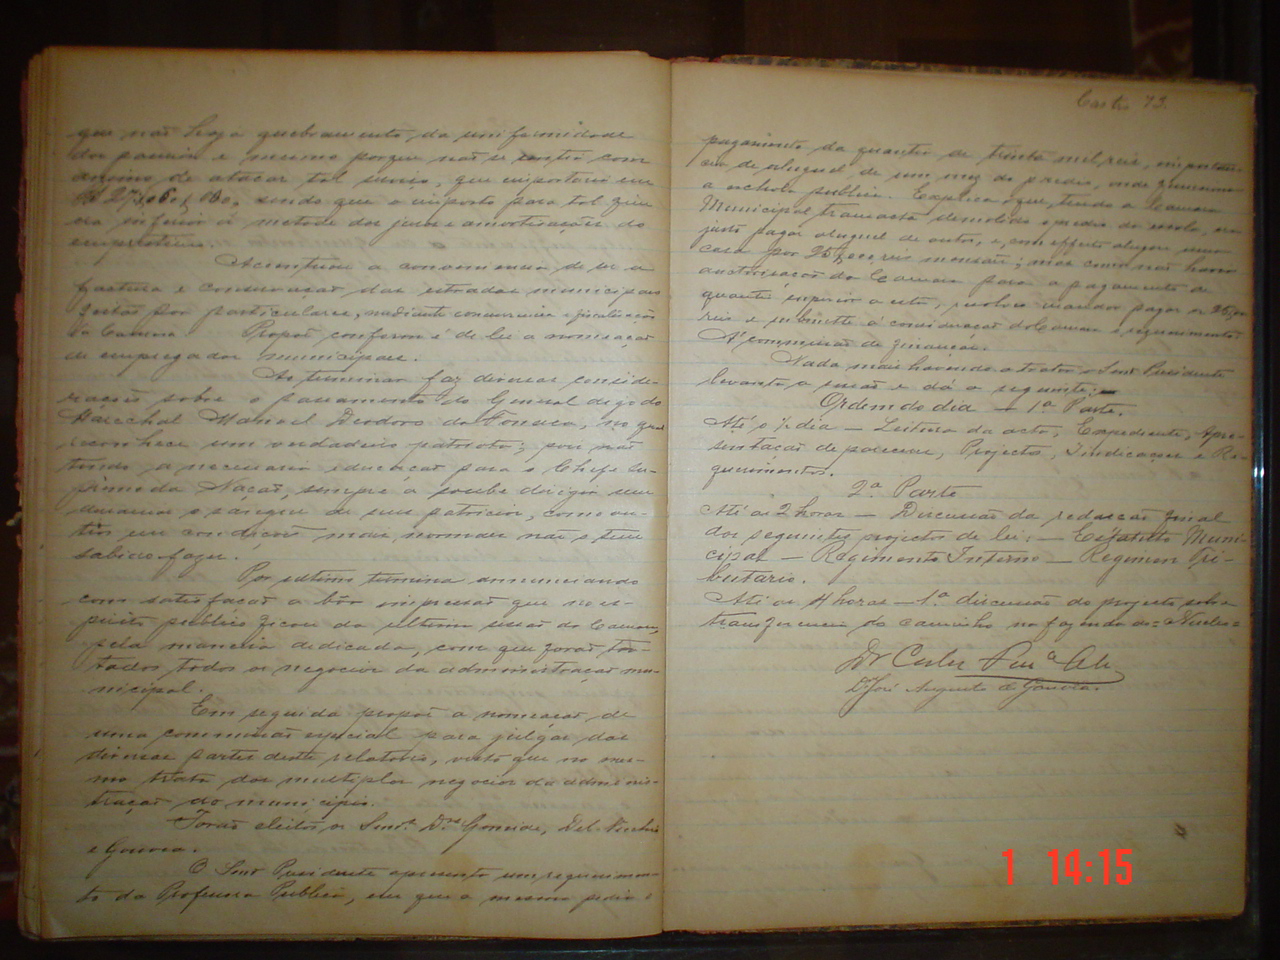 que não haja quebramento da uniformidade
dos passeios e mesmo porque não se sentio com
animo de atacar tal serviço, que importaria em
sendo que o imposto para tal fim
era inferior á metade dos juros e amortisação do
emprestimo.
Accentuou a conveniencia de ser a
factura e conservação das estradas municipaes
feitas por particulares, mediante concurrencia e fiscalisação
da Camara. Propôz conforme é de lei a nomeação
de empregados municipaes.
Ao terminar faz diversas conside-
rações sobre o passamento do General digo do
Marechal Manoel Deodoro da Fonseca, no qual
reconhece um verdadeiro patriota; pois não
tendo a necessaria educação para o Chefe Su-
premo da Nação, sempre a soube dirigir sem
derramar o sangue de seus patricios, como ou-
tros em condições mais normaes não o tem
sabido fazer.
Por ultimo termina annunciando
com satisfação a bôa impressão que no es-
pirito publico ficou da ultima sessão da Camara,
pela maneira dedicada, com que forão tra-
tados todos os negocios da administração mu-
nicipal.
Em seguida propôz a nomeação de
uma commissão especial para julgar das
diversas partes deste relatorio, visto que no mes-
mo trata dos multiplos negocios da adminis-
tração do municipio.
Forão eleitos os Senrs. Drs. Gouveia,
e Gouvea.
O Senr Presidente apresenta um requerimen-
to da Professora Publica, em que a mesma pedia o
73.
pagamento da quantia de trinta mil reis, importan-
cia de aluguel de um mez do predio, onde funcciona
a eschola publica. Explica que, tendo a Camara
Municipal transacta demolido o predio da escola, era
justo pagar aluguel de outro, e, com effeito alugou uma
casa por reis mensaes; mas como não havia
auctorisação da Camara para o pagamento de
quantia superior a esta, resolveu mandar pagar os
reis e submette á consideração da Camara o requerimento.
Á commissão de finanças.
Nada mais havendo a tratar o Senr Presidente
levanta a sessão e dá a seguinte: —
Ordem do dia — 1ª Parte.
Até o ½ dia — Leitura da acta, Expediente, Apre-
sentação de pareceres, Projectos, Indicações e Re-
querimentos.
2ª Parte
Até as 2 horas — Discussão da redacção final
dos seguintes projectos de lei: — Estatuto Muni-
cipal — Regimento Interno — Regimen Tri-
butario.
Até as 4 horas — 1ª discussão do projecto sobre
transferencia do caminho na fazenda do = Nucleo =
Dr José Augusto de
1 14:15